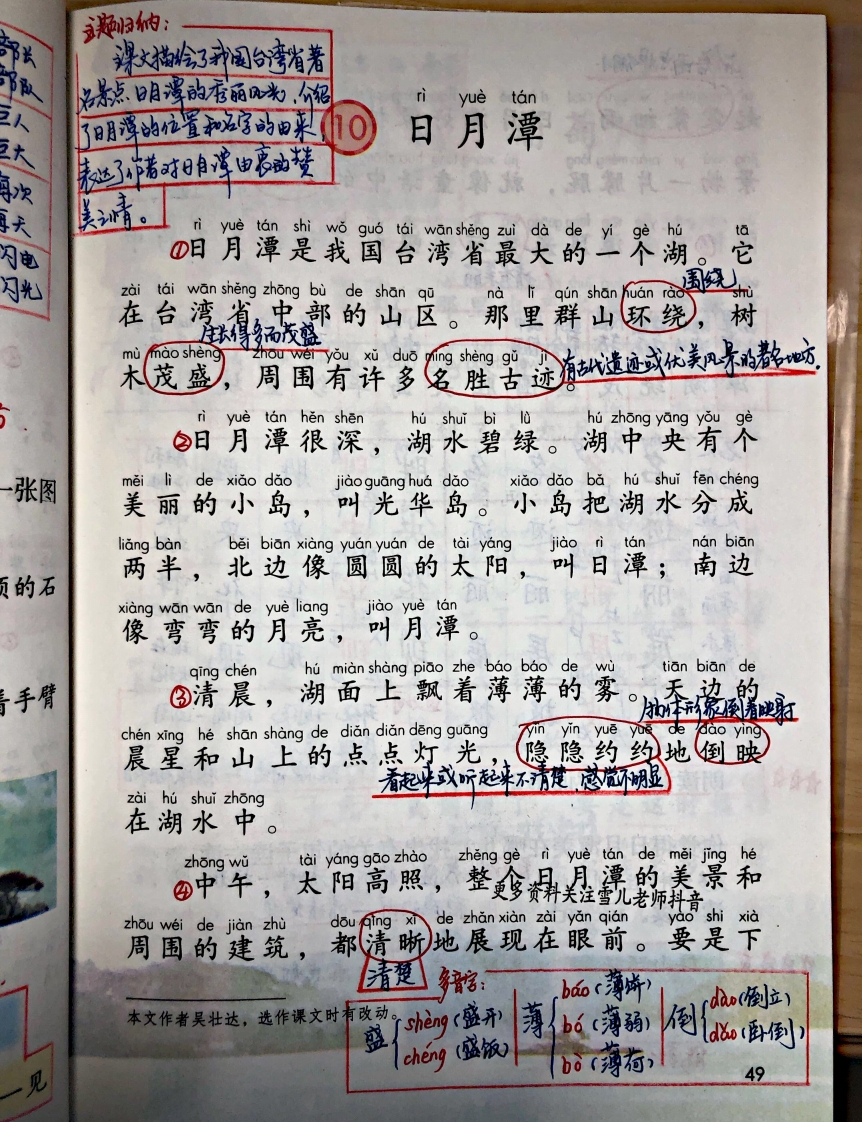 部长
部队
巨人
巨大
再次
再天
闪电
闪光
一张图
的石
着手臂
一见
主题归纳：
课文描绘了我国台湾省著
名景点日月潭的秀丽风光，介绍
了日月潭的位置和名字的由来，
表达了作者对日月潭由衷的赞
美之情。
rì yuè tán
10 日月潭
rì yuè tán shì wǒ guó tái wān shěng zuì dà de yí gè hú tā
①日月潭是我国台湾省最大的一个湖。它
围绕
zài tái wān shěng zhōng bù de shān qū nà lǐ qún shān huán rào shù
在台湾省中部的山区。那里群山环绕，树
生长得多而茂盛
mù mào shèng zhōu wéi yǒu xǔ duō míng shèng gǔ jì
木茂盛，周围有许多名胜古迹。
有古代遗迹或优美风景的著名地方。
rì yuè tán hěn shēn hú shuǐ bì lǜ hú zhōng yāng yǒu gè
②日月潭很深，湖水碧绿。湖中央有个
měi lì de xiǎo dǎo jiào guāng huá dǎo xiǎo dǎo bǎ hú shuǐ fēn chéng
美丽的小岛，叫光华岛。小岛把湖水分成
liǎng bàn běi biān xiàng yuán yuán de tài yáng jiào rì tán nán biān
两半，北边像圆圆的太阳，叫日潭；南边
xiàng wān wān de yuè liang jiào yuè tán
像弯弯的月亮，叫月潭。
qīng chén hú miàn shàng piāo zhe báo báo de wù tiān biān de
③清晨，湖面上飘着薄薄的雾。天边的
物体形象倒着映射
chén xīng hé shān shàng de diǎn diǎn dēng guāng yǐn yǐn yuē yuē de dào yìng
晨星和山上的点点灯光，隐隐约约地倒映
看起来或听起来不清楚，感觉不明显
zài hú shuǐ zhōng
在湖水中。
zhōng wǔ tài yáng gāo zhào zhěng gè rì yuè tán de měi jǐng hé
④中午，太阳高照，整个日月潭的美景和
更多资料关注雪儿老师抖音
zhōu wéi de jiàn zhù dōu qīng xī de zhǎn xiàn zài yǎn qián yào shi xià
周围的建筑，都清晰地展现在眼前。要是下
清楚
多音字：
本文作者吴壮达，选作课文时有改动。
盛 shèng（盛开） chéng（盛饭）
薄 báo（薄饼） bó（薄弱） bò（薄荷）
倒 dào（倒立） dǎo（卧倒）
49